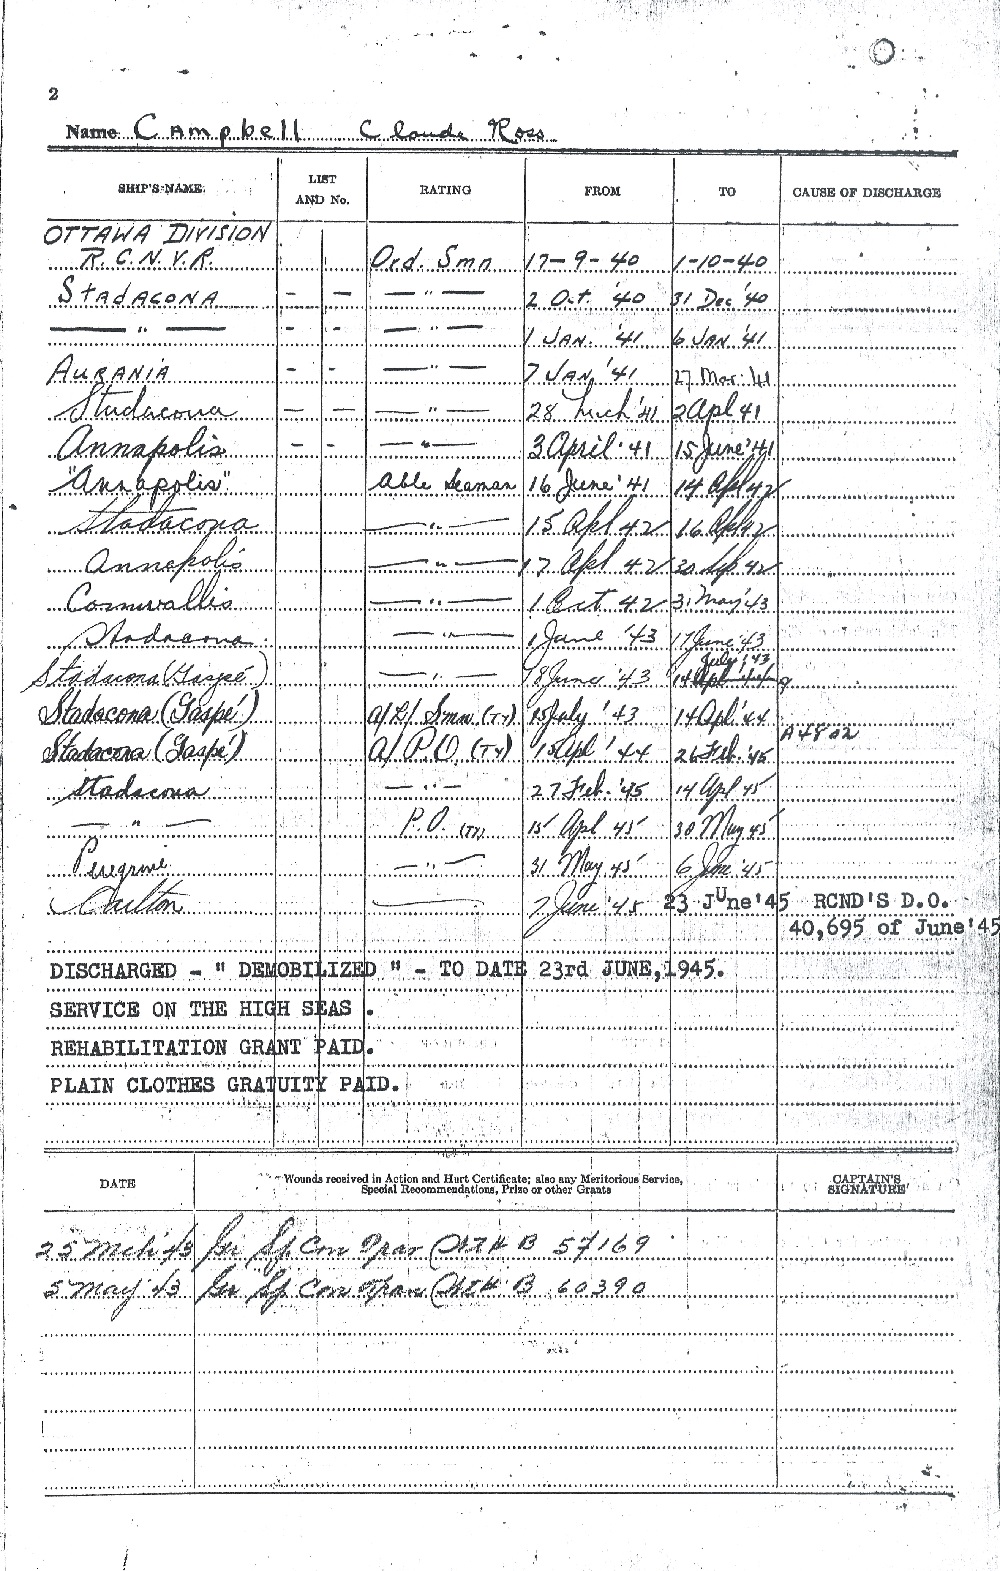 2
Name Campbell Claude Ross
SHIP'S NAME. LIST AND No. RATING FROM TO CAUSE OF DISCHARGE
OTTAWA DIVISION
R.C.N.V.R. Ord. Smn 17-9-40 1-10-40
STADACONA - - — " — 2 Oct. '40 31 Dec '40
— " — - - — " — 1 JAN. '41 6 JAN '41
AURANIA - - — " — 7 JAN. '41 27 Mar. '41
Stadacona - - — " — 28 '41 2 Apl 41
Annapolis - - — " — 3 April '41 15 June '41
"Annapolis" Able Seaman 16 June '41 14 Apl 42
Stadacona — " — 15 Apl 42 16 Apl 42
Annapolis — " — 17 Apl 42 30 Sep 42
Cornwallis — " — 1 Oct 42 31 May '43
Stadacona — " — 1 June '43 17 June '43
Stadacona (Gaspé) — " — 18 June '43 14 July '43
Stadacona (Gaspé) A/L/ Smn (Ty) 15 July '43 14 Apl '44
Stadacona (Gaspé) A/ P.O. (Ty) 15 Apl '44 26 Feb. '45 A4802
Stadacona — " — 27 Feb. '45 14 Apl 45
— " — P.O. (Ty) 15 Apl 45 30 May 45
Peregrine — " — 31 May 45 6 June '45
Carlton 7 June '45 23 JUne'45 RCND'S D.O.
40,695 of June'45
DISCHARGED - " DEMOBILIZED " - TO DATE 23rd JUNE,1945.
SERVICE ON THE HIGH SEAS .
REHABILITATION GRANT PAID.
PLAIN CLOTHES GRATUITY PAID.
DATE Wounds received in Action and Hurt Certificate; also any Meritorious Service, Special Recommendations, Prize or other Grants CAPTAIN'S SIGNATURE
25 Mch '43 Gr Sp Con B 57169
5 May '43 Gr Sp Con B 60390